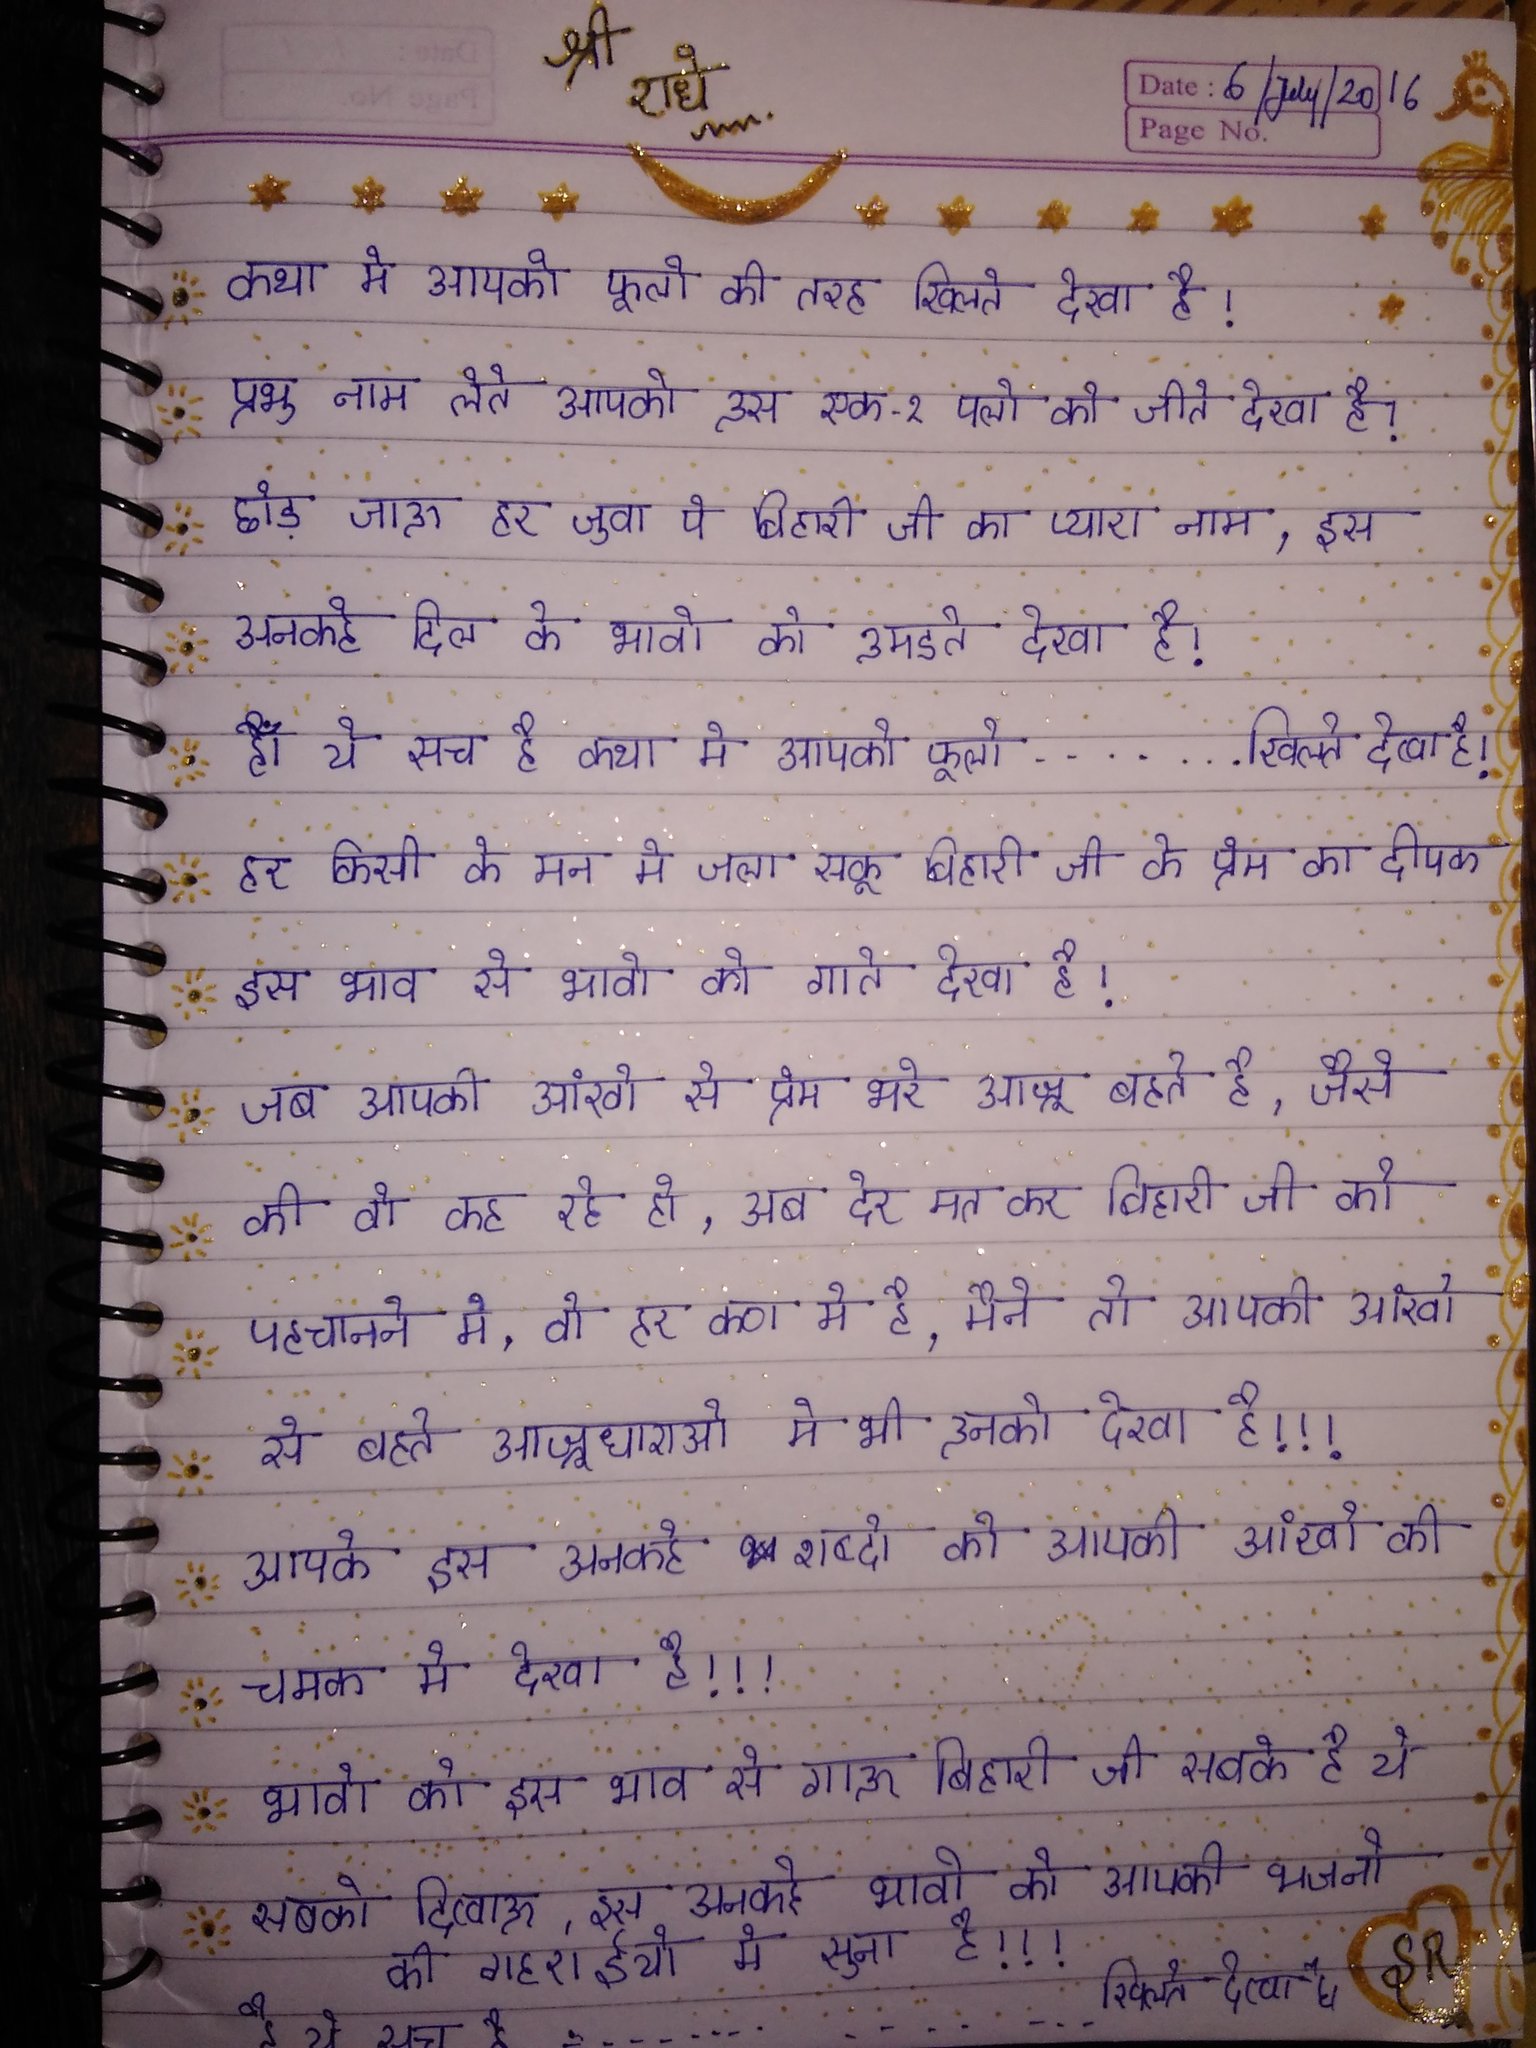 श्री
राधे
Date : 6/July/2016
Page No.
कथा मे आपको फूलो की तरह खिलते देखा है!
प्रभु नाम लेते आपको उस एक-२ पलो को जीते देखा है!
छोड़ जाऊ हर जुवा पे बिहारी जी का प्यारा नाम, इस
अनकहे दिल के भावो को उमडते देखा है!
हाँ ये सच है कथा मे आपको फूलो - - - . . . . खिलते देखा है!
हर किसी के मन मे जला सकू बिहारी जी के प्रेम का दीपक
इस भाव से भावो को गाते देखा है!
जब आपकी आंखो से प्रेम भरे आश्रू बहते है, जैसे
की वो कह रहे हो, अब देर मत कर बिहारी जी को
पहचानने मे, वो हर कण मे है, मैने तो आपकी आंखो
से बहते आश्रूधाराओ मे भी उनको देखा है!!!
आपके इस अनकहे शब्दो को आपकी आंखो की
चमक मे देखा है!!!
भावो को इस भाव से गाऊ बिहारी जी सबके है ये
सबको दिखाऊ, इस अनकहे भावो को आपकी भजनो
की गहराईयो मे सुना है!!!
है ये सच है - - - - - - - - - - - - खिलते देखा है
SR